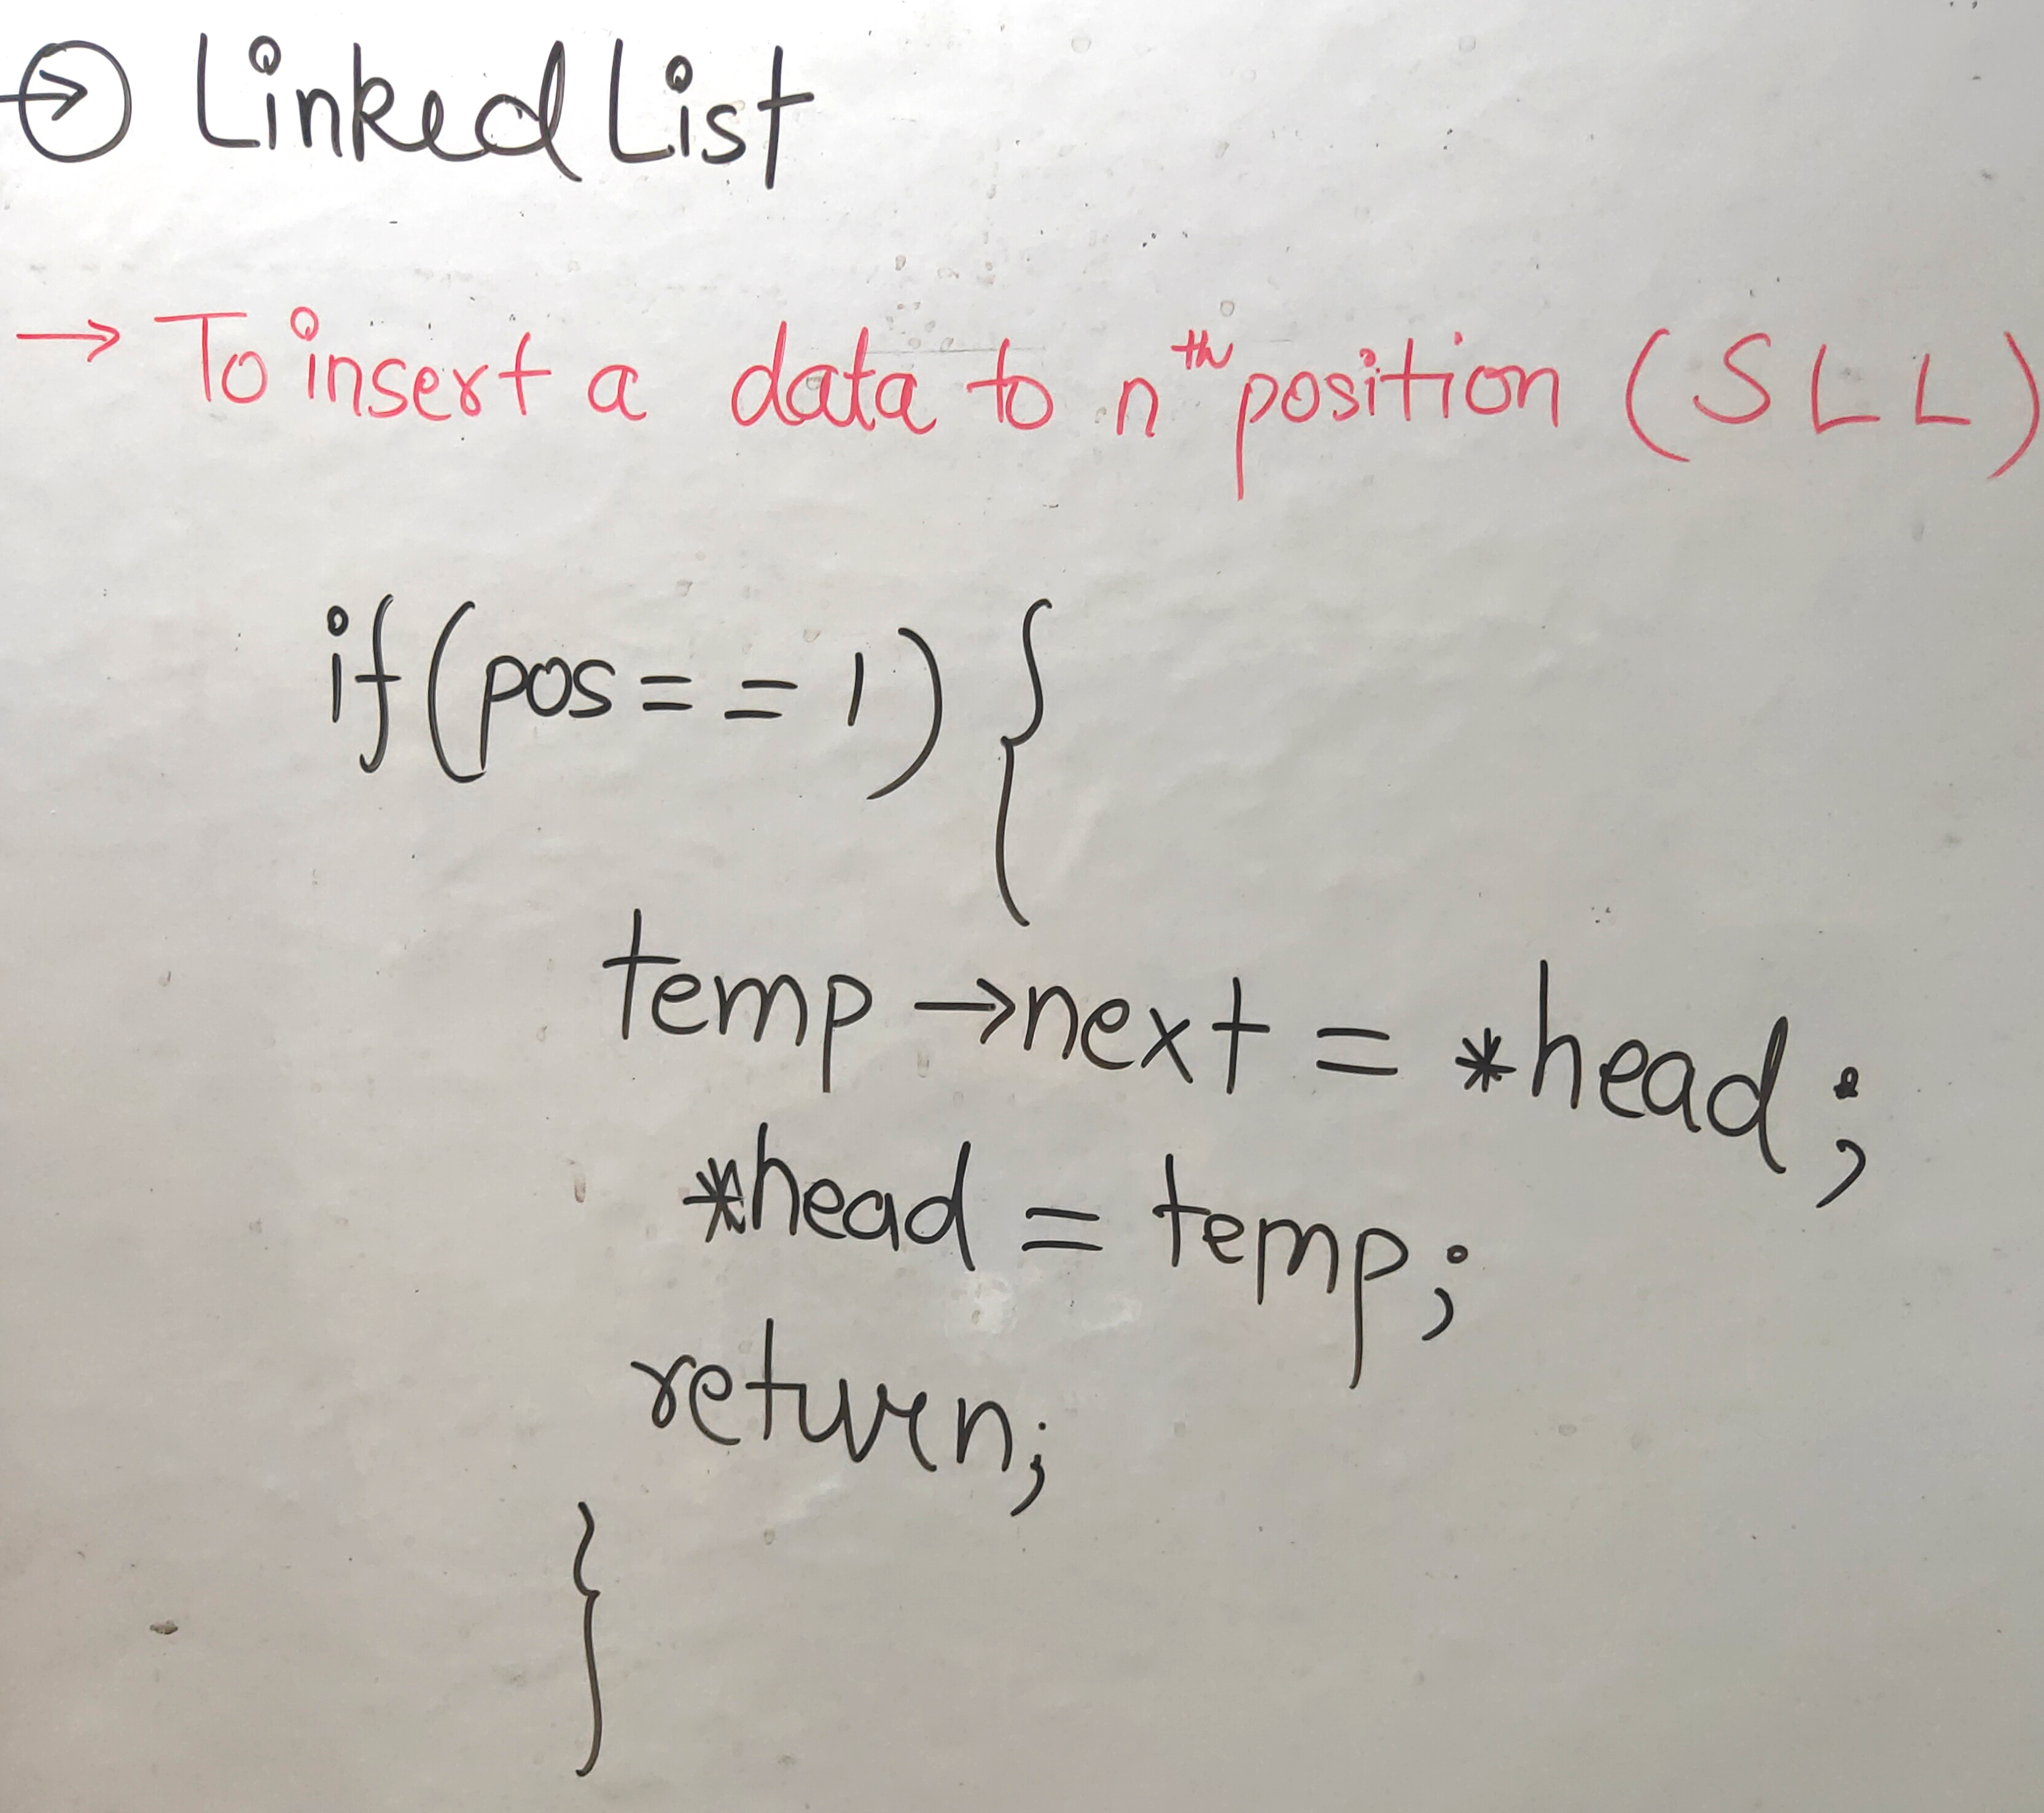 → Linked List
→ To insert a data to nth position (SLL)
if(pos==1){
temp→next = *head;
*head = temp;
return;
}